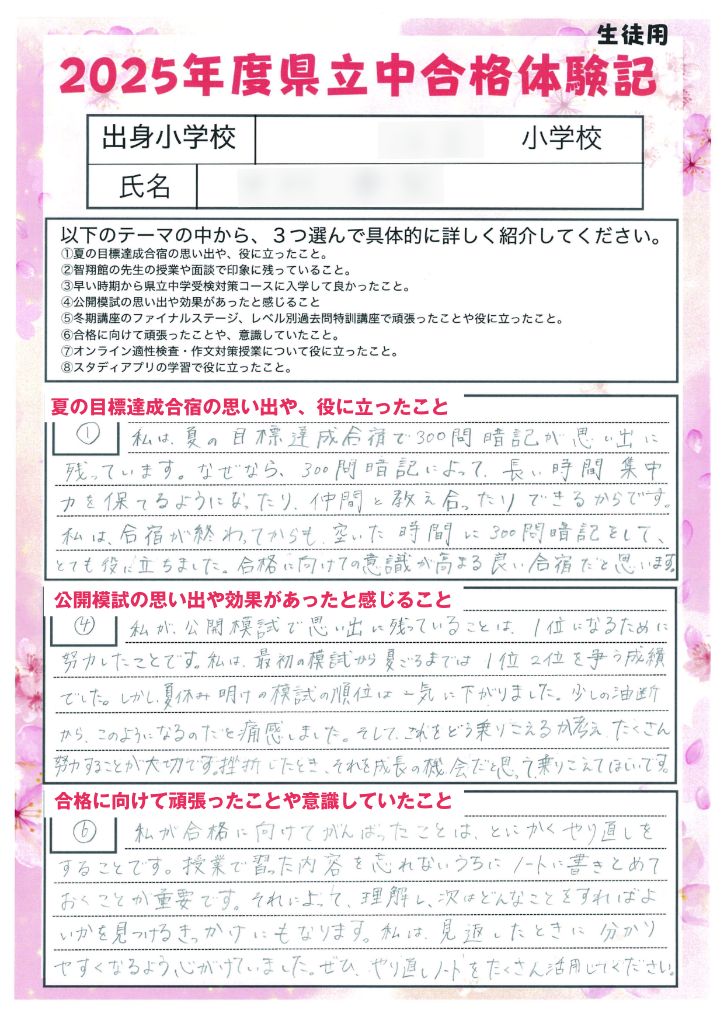 生徒用
2025年度県立中合格体験記
出身小学校
小学校
氏名
以下のテーマの中から、３つ選んで具体的に詳しく紹介してください。
①夏の目標達成合宿の思い出や、役に立ったこと。
②智翔館の先生の授業や面談で印象に残っていること。
③早い時期から県立中学受検対策コースに入学して良かったこと。
④公開模試の思い出や効果があったと感じること
⑤冬期講座のファイナルステージ、レベル別過去問特訓講座で頑張ったことや役に立ったこと。
⑥合格に向けて頑張ったことや、意識していたこと。
⑦オンライン適性検査・作文対策授業について役に立ったこと。
⑧スタディアプリの学習で役に立ったこと。
夏の目標達成合宿の思い出や、役に立ったこと
①
私は、夏の目標達成合宿で300問暗記が思い出に
残っています。なぜなら、300問暗記によって、長い時間集中
力を保てるようになったり、仲間と教え合ったりできるからです。
私は、合宿が終わってからも、空いた時間に300問暗記をして、
とても役に立ちました。合格に向けての意識が高まる良い合宿だと思います。
公開模試の思い出や効果があったと感じること
④
私が、公開模試で思い出に残っていることは、1位になるために
努力したことです。私は、最初の模試から夏ごろまでは1位2位を争う成績
でした。しかし、夏休み明けの模試の順位は一気に下がりました。少しの油断
から、このようになるのだと痛感しました。そして、これをどう乗りこえるか考え、たくさん
努力することが大切です。挫折したとき、それを成長の機会だと思って、乗りこえてほしいです。
合格に向けて頑張ったことや意識していたこと
⑥
私が合格に向けてがんばったことは、とにかくやり直しを
することです。授業で習った内容を忘れないうちにノートに書きとめて
おくことが重要です。それによって、理解し、次はどんなことをすればよ
いかを見つけるきっかけにもなります。私は、見返したときに分かり
やすくなるよう、心がけていました。ぜひ、やり直しノートをたくさん活用してください。